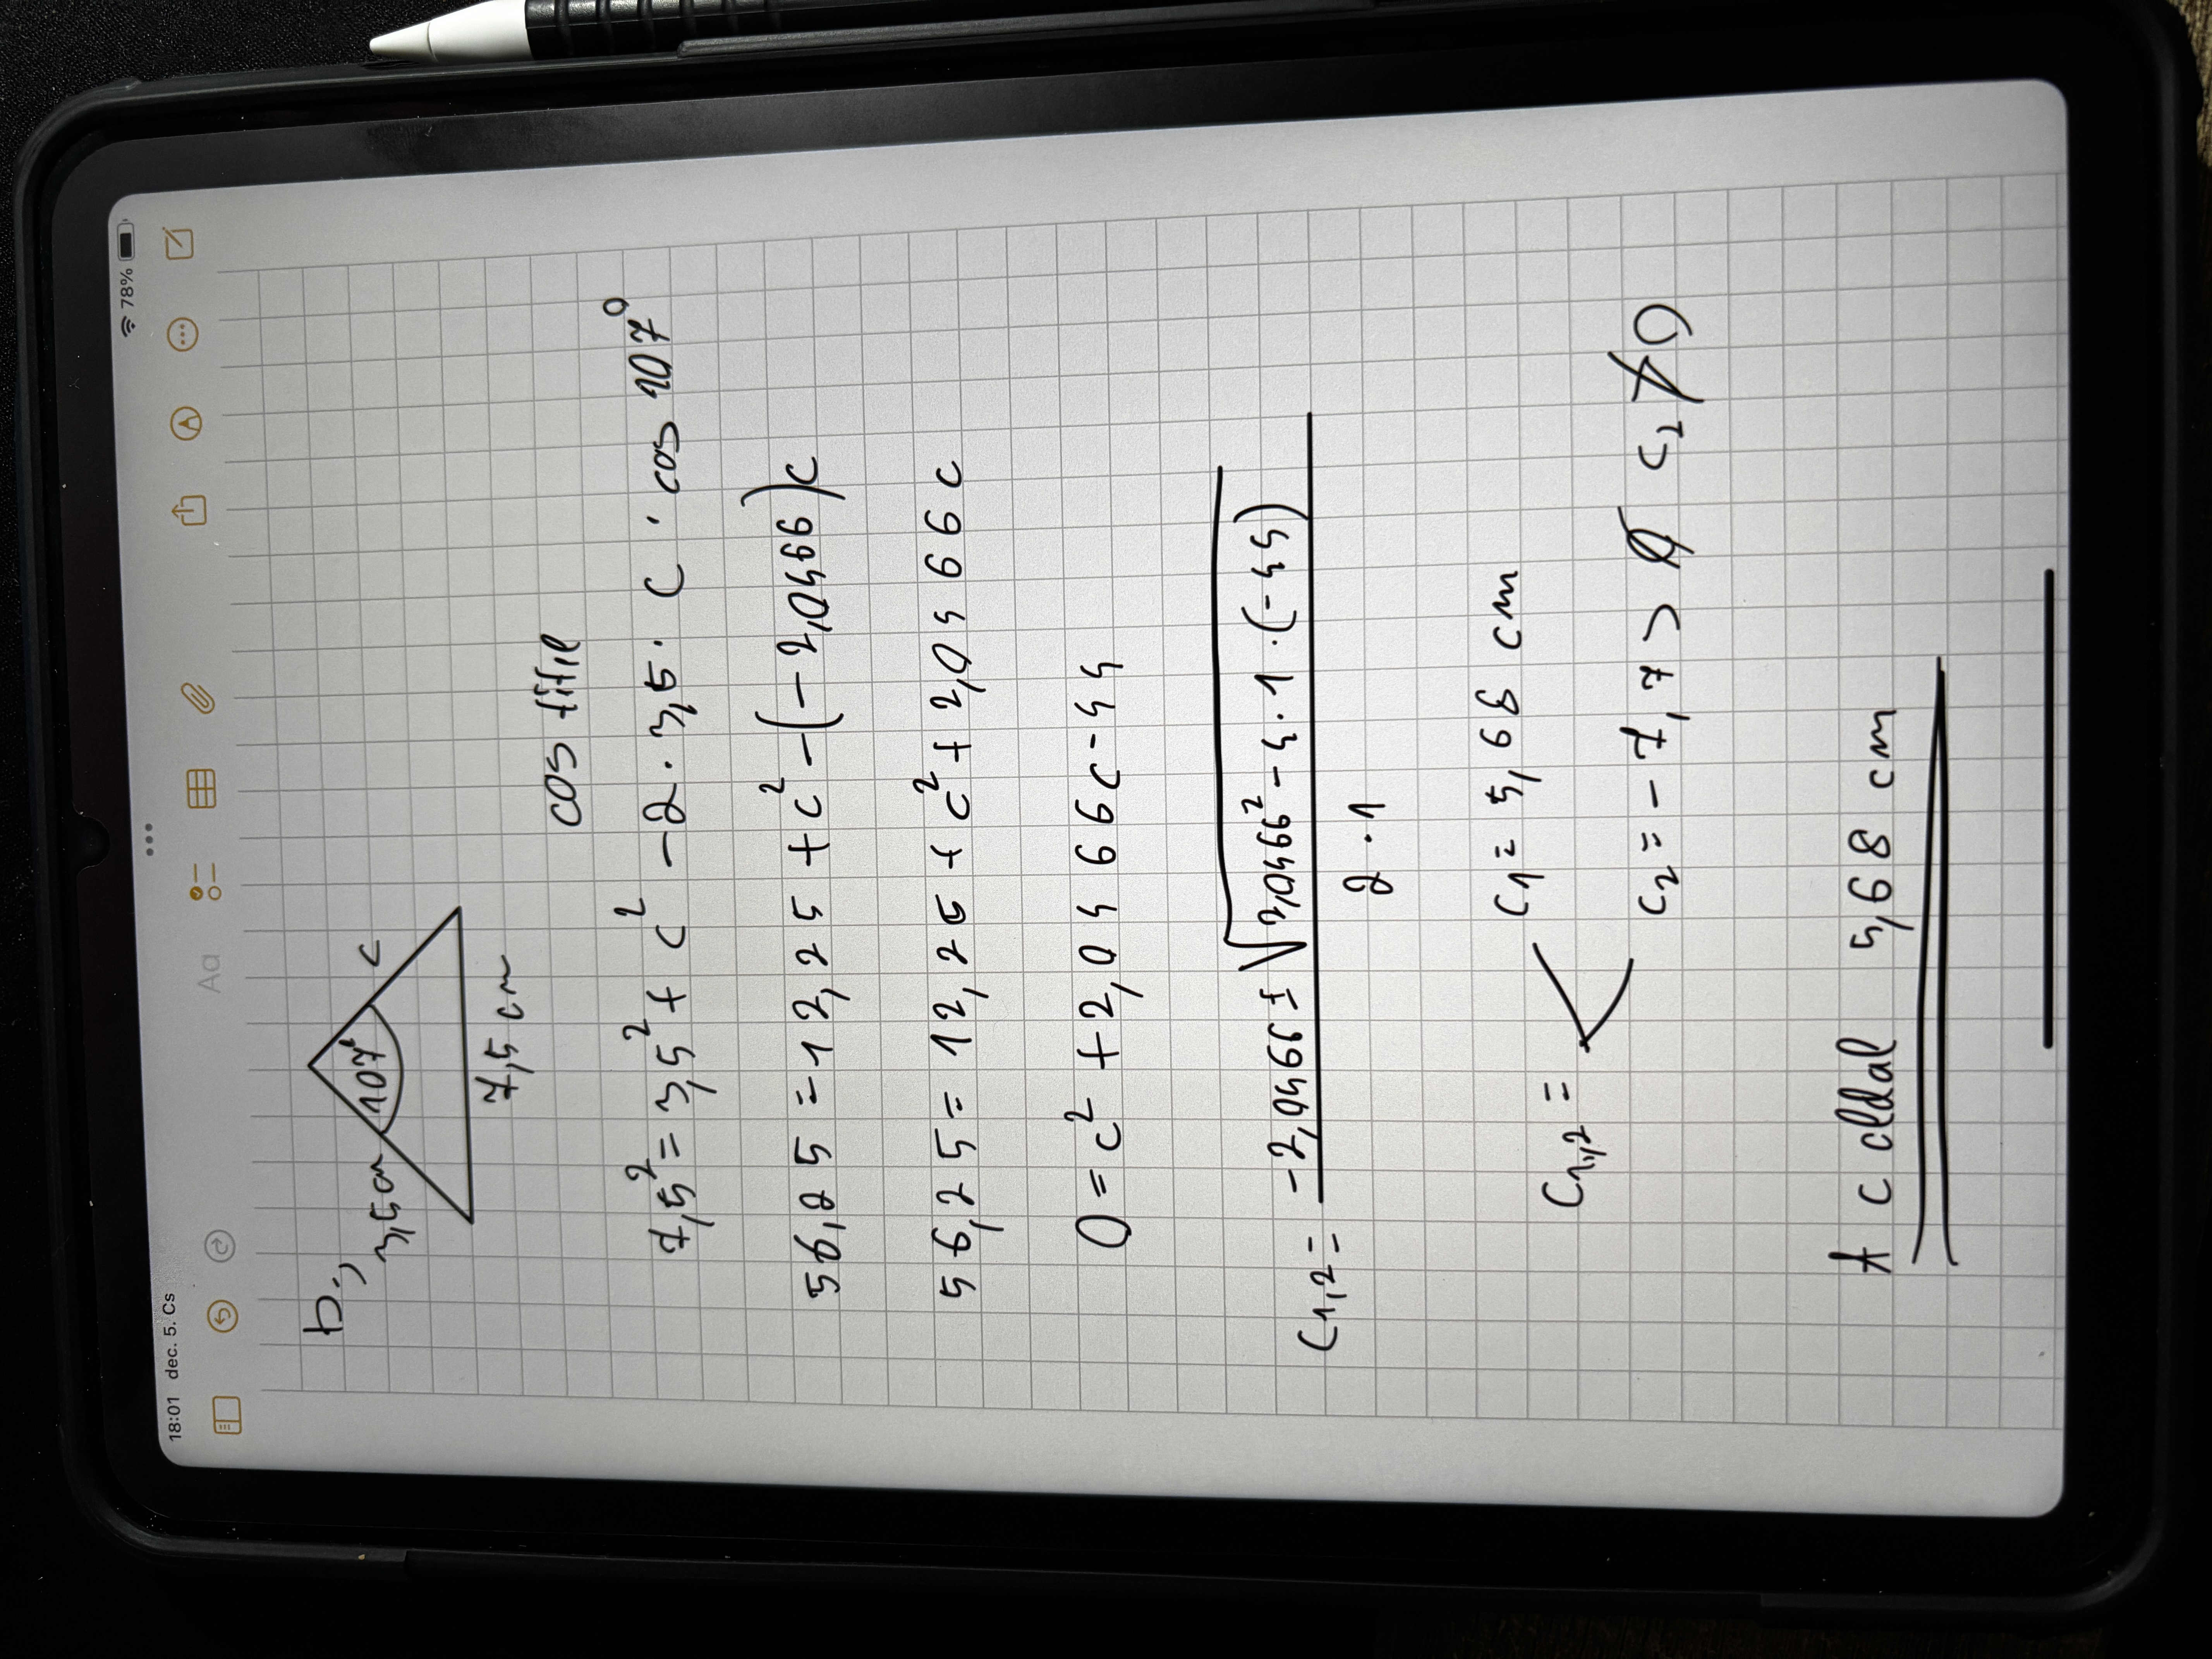 18:01 dec. 5. Cs 78%
Aa
b.,
3,5cm 107° c
7,5 cm
cos tétel
7,5² = 3,5² + c² - 2 · 3,5 · c · cos 107°
56,25 = 12,25 + c² - (-2,0466)c
56,25 = 12,25 + c² + 2,0466c
0 = c² + 2,0466c - 44
c1,2 = -2,0466 ± √2,0466² - 4 · 1 · (-44)
2 · 1
c1,2 =
c1 = 5,68 cm
c2 = -7,7 > ∅ c2 ≯ 0
A c oldal 5,68 cm